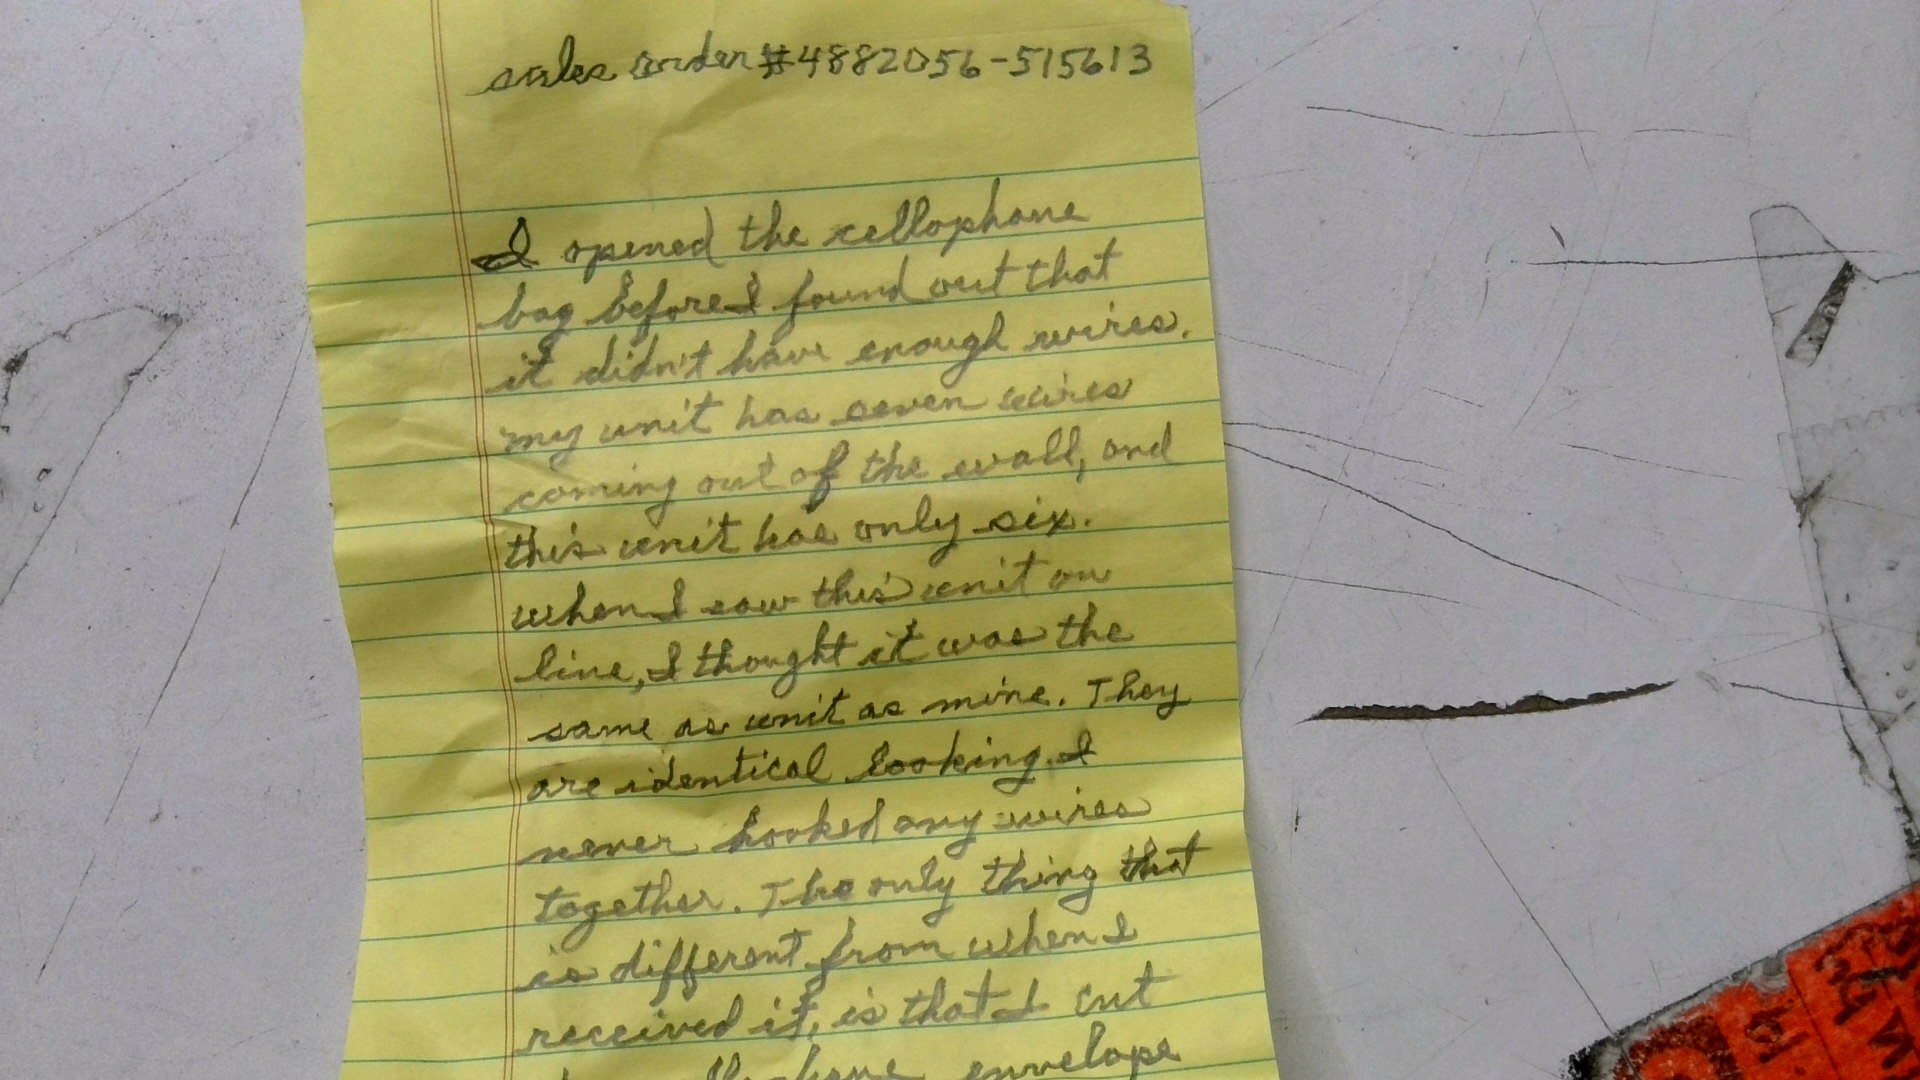 sales order #4882056-515613
I opened the cellophane
bag before I found out that
it didn't have enough wires.
my unit has seven wires
coming out of the wall, and
this unit has only six.
when I saw this unit on
line, I thought it was the
same as unit as mine. They
are identical looking. I
never hooked any wires
together. The only thing that
is different from when I
received it, is that I cut
envelope